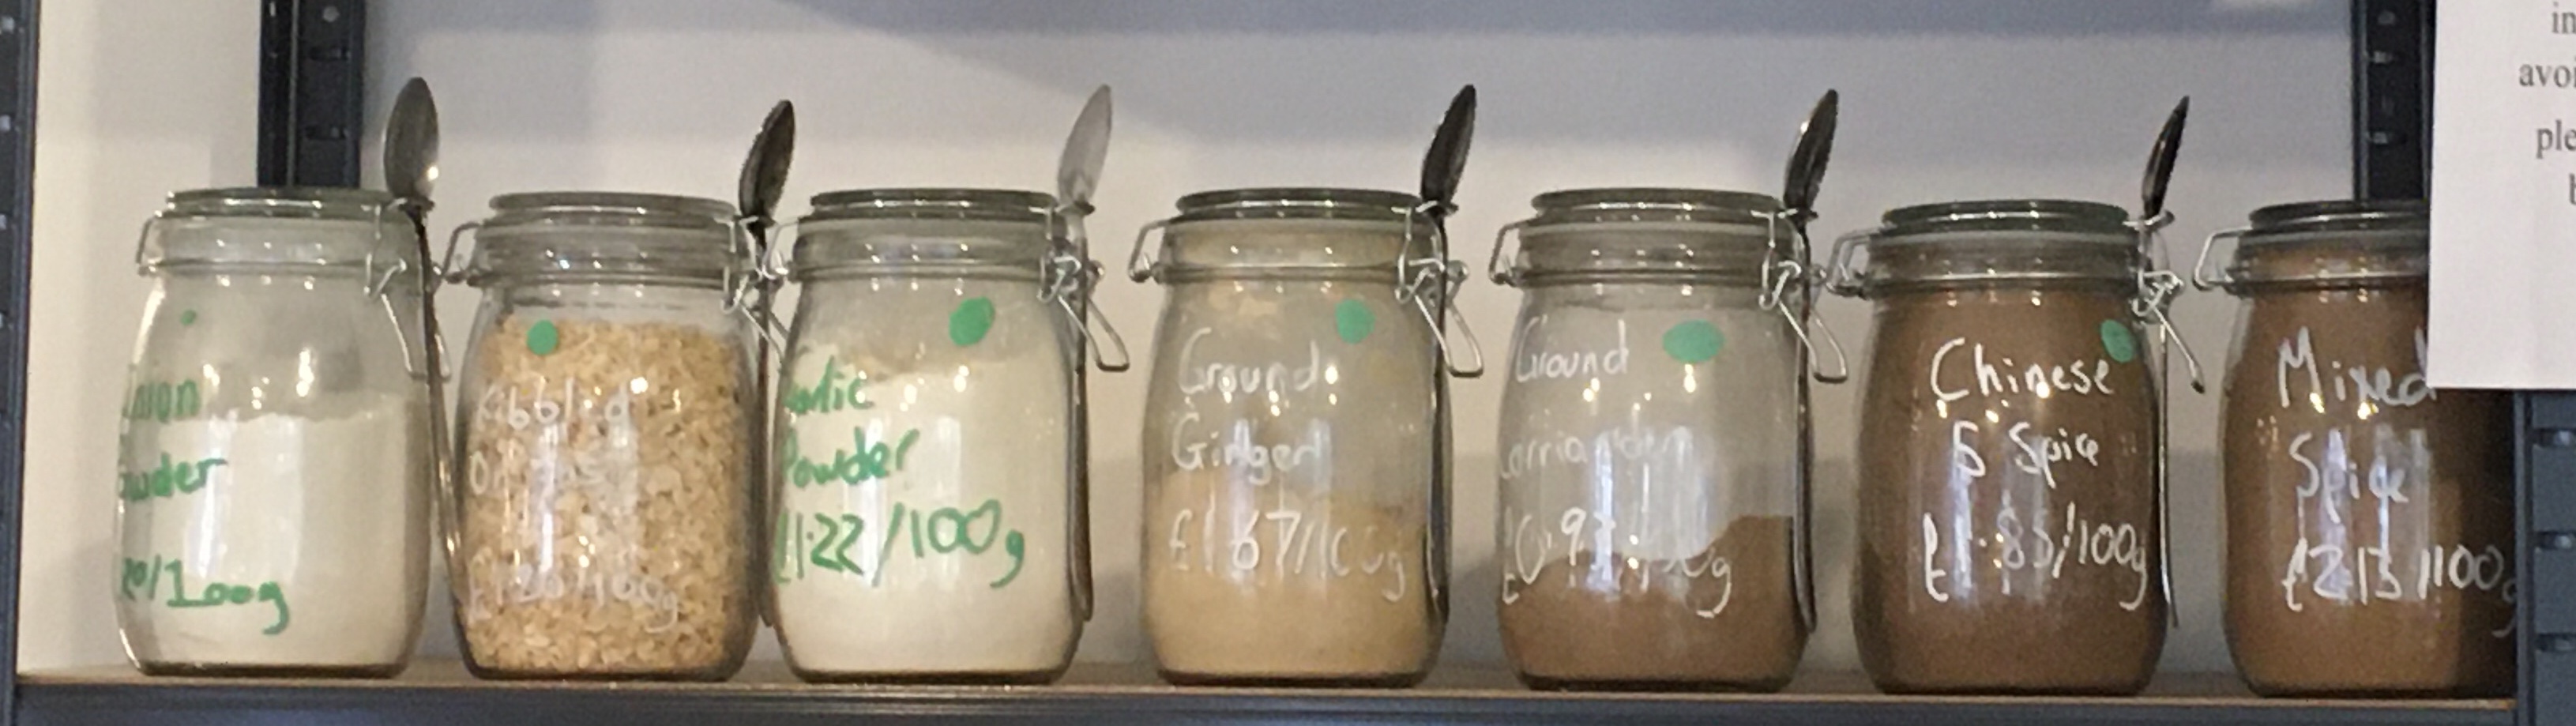 Powder
/100g
Kibbled
Onions
£1.20/100g
Garlic
Powder
£1.22/100g
Ground
Ginger
£1.67/100g
Ground
Corriander
Chinese
5 Spice
£1.83/100g
Mixed
Spice
£2.13/100g
in
avoi
ple